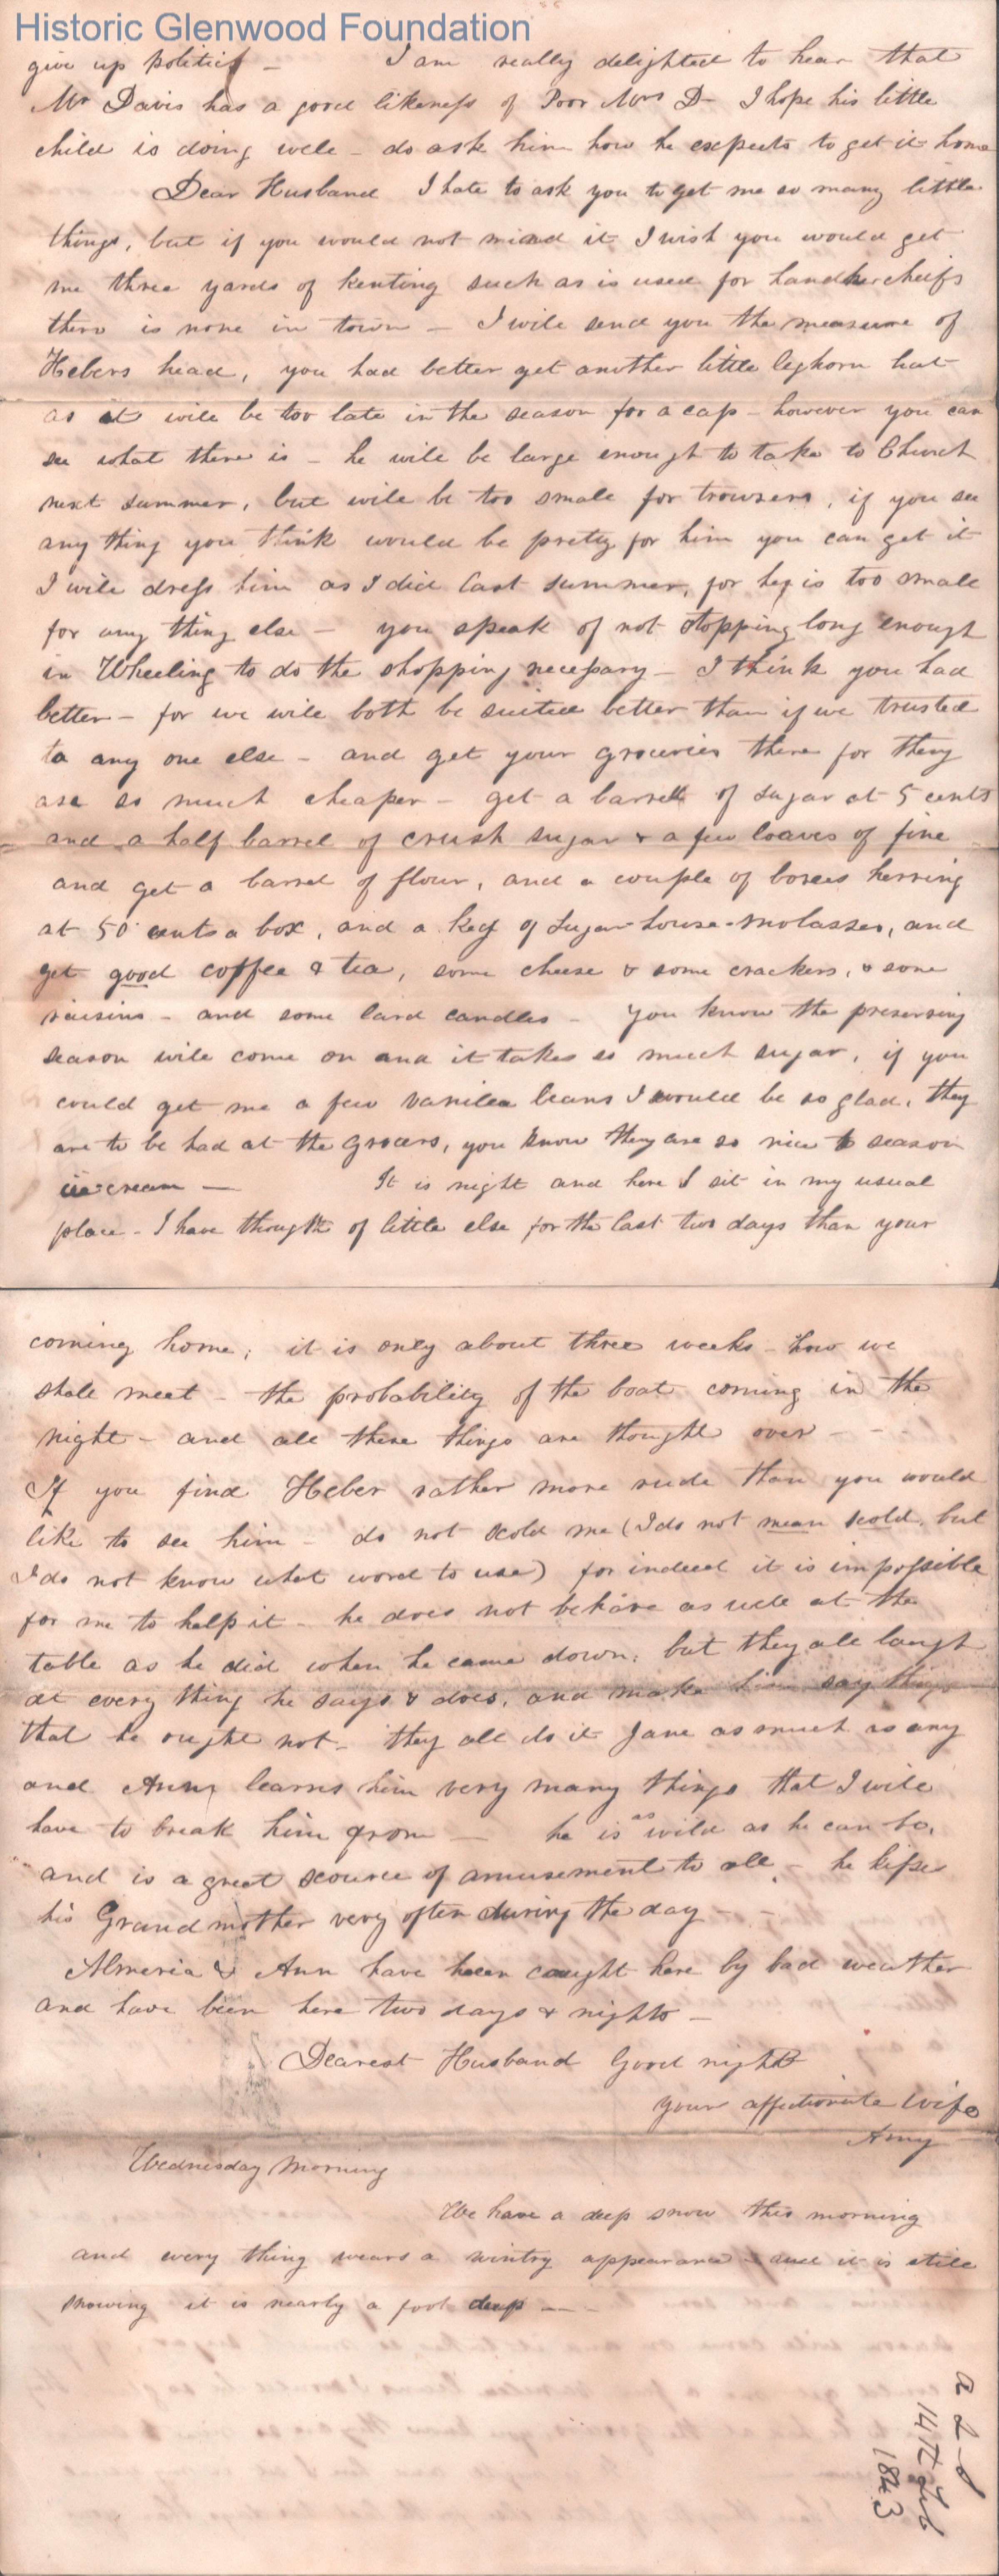 Historic Glenwood Foundation
give up politics – I am really delighted to hear that
Mr Davis has a good likeness of Poor Mrs D – I hope his little
child is doing well – do ask him how he expects to get it home
Dear Husband I hate to ask you to get me so many little
things, but if you would not mind it I wish you would get
me three yards of kenting such as is used for handkercheifs
there is none in town – I will send you the measure of
Hebers head, you had better get another little leghorn hat
as it will be too late in the season for a cap – however you can
see what there is – he will be large enough to take to Church
next summer, but will be too small for trowsers, if you see
any thing you think would be pretty for him you can get it
I will dress him as I did last summer, for he is too small
for any thing else – you speak of not stopping long enough
in Wheeling to do the shopping necessary – I think you had
better – for we will both be suited better than if we trusted
to any one else – and get your groceries there for they
are so much cheaper – get a barrell of sugar at 5 cents
and a half barrel of crush sugar & a few loaves of fine
and get a barrel of flour, and a couple of boxes herring
at 50 cents a box, and a keg of sugar-house-molasses, and
get good coffee & tea, some cheese & some crackers, & some
raisins – and some lard candles – you know the preserving
season will come on and it takes so much sugar, if you
could get me a few vanilla beans I would be so glad, they
are to be had at the grocers, you know they are so nice to season
ice cream – It is night and here I sit in my usual
place – I have thought of little else for the last two days than your
coming home, it is only about three weeks – how we
shall meet – the probability of the boat coming in the
night – and all these things are thought over – - -
If you find Heber rather more rude than you would
like to see him – do not scold me (I do not mean scold, but
I do not know what word to use) for indeed it is impossible
for me to help it – he does not behave as well at the
table as he did when he came down, but they all laugh
at every thing he says & does, and make him say things
that he ought not – they all do it Jane as much as any
and Ann learns him very many things that I will
have to break him from – he is as wild as he can be,
and is a great scource of amusement to all – he kisses
his Grandmother very often during the day – -
Almeria & Ann have been caught here by bad weather
and have been here two days & nights –
Dearest Husband Good night
your affectionate wife
Amy
Wednesday Morning
We have a deep snow this morning
and every thing wears a wintry appearance – and it is still
snowing it is nearly a foot deep –
a L S
14th Feb
1843